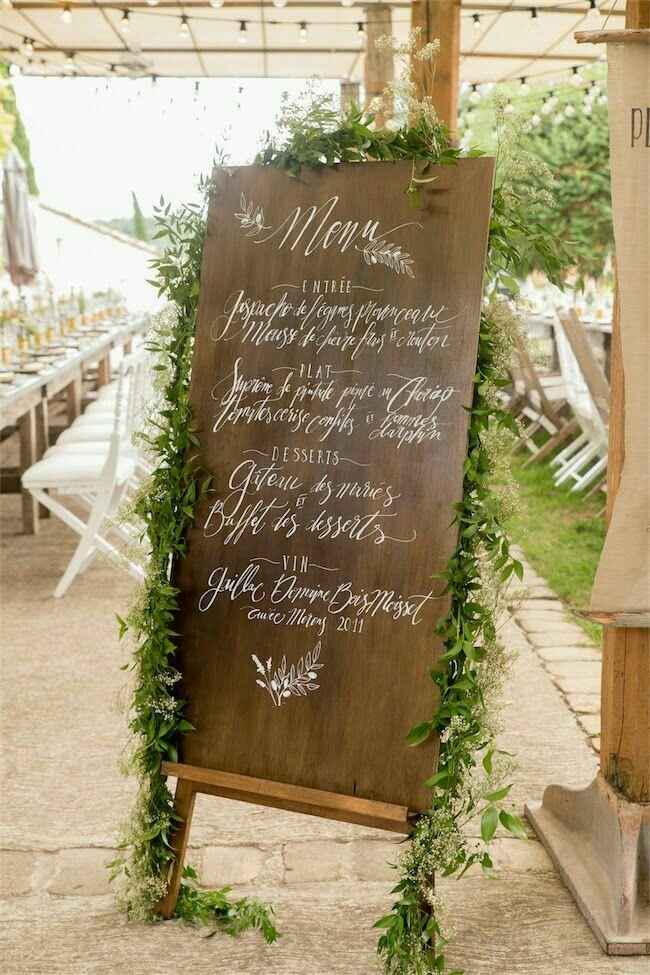 Menu
ENTRÉE
Gaspacho de légumes provençaux
Mousse de chèvre frais et crouton
PLAT
Suprême de pintade pané au Chorizo
Tomates cerise confites et Pommes
Darphin
DESSERTS
Gâteau des mariés
et
Buffet des desserts
VIN
Gaillac Domaine Bois Moisset
Cuvée 2011